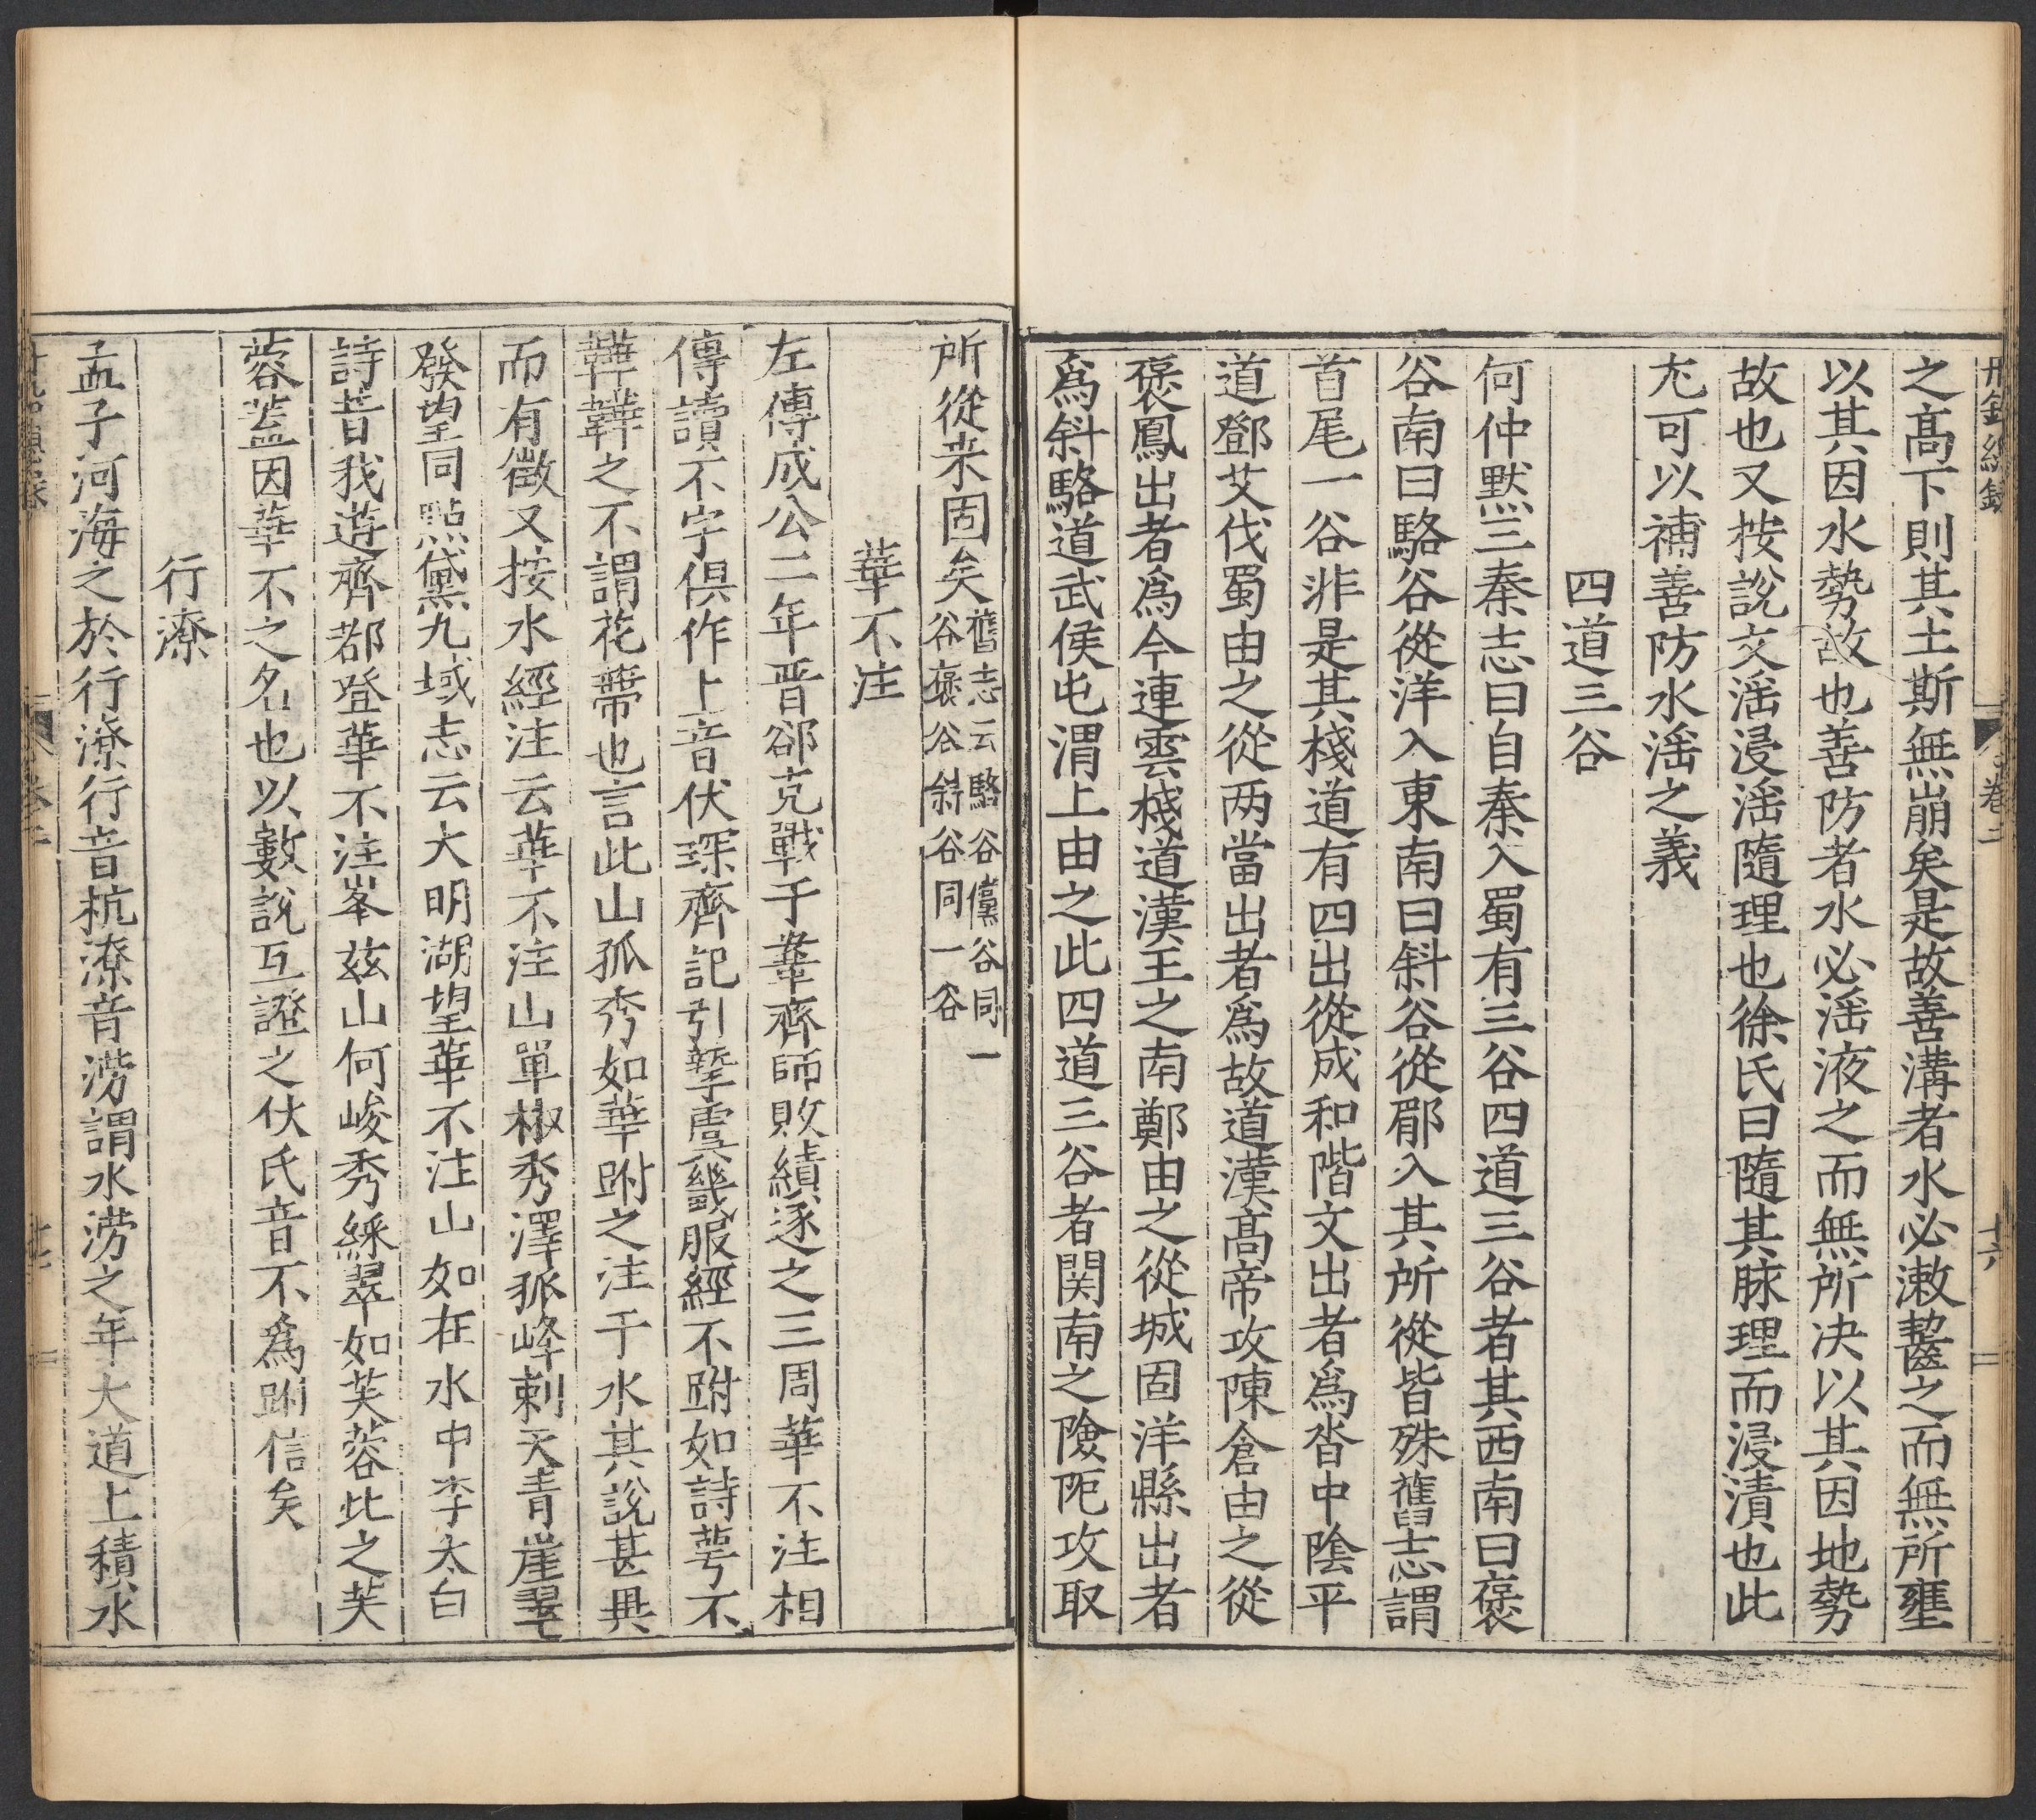 丹鉛總錄 卷二 十六
之髙下則其土斯無崩矣是故善溝者水必漱齧之而無所壅
以其因水勢故也善防者水必滛液之而無所决以其因地勢
故也又按說文滛浸滛隨理也徐氏曰隨其脉理而浸漬也此
尤可以補善防水滛之義
四道三谷
何仲默三秦志曰自秦入蜀有三谷四道三谷者其西南曰褒
谷南曰駱谷從洋入東南曰斜谷從郿入其所從皆殊舊志謂
首尾一谷非是其棧道有四出從成和階文出者爲沓中陰平
道鄧艾伐蜀由之從两當出者爲故道漢髙帝攻陳倉由之從
褒鳳出者爲今連雲棧道漢王之南鄭由之從城固洋縣出者
爲斜駱道武侯屯渭上由之此四道三谷者関南之險阨攻取
所從来固矣舊志云駱谷儻谷同一
谷褒谷斜谷同一谷
華不注
左傳成公二年晋郤克戰于鞌齊師敗績逐之三周華不注相
傳讀不字俱作卜音伏琛齊記引摯虞畿服經不跗如詩萼不
韡韡之不謂花蔕也言此山孤秀如華跗之注于水其說甚異
而有徵又按水經注云華不注山單椒秀澤孤峰刺天青崖翠
發望同㸃黛九域志云大明湖望華不注山如在水中李太白
詩昔我遊齊都登華不注峯兹山何峻秀綵翠如芙蓉比之芙
蓉葢因華不之名也以數說互證之伏氏音不爲跗信矣
行潦
孟子河海之於行潦行音杭潦音澇謂水澇之年大道上積水